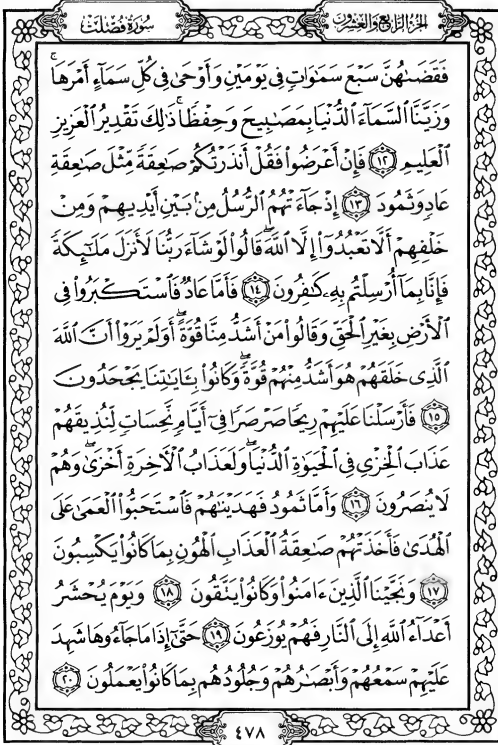 الجزء الرابع والعشرون
سورة فصلت
فَقَضَىٰهُنَّ سَبْعَ سَمَٰوَاتٍ فِى يَوْمَيْنِ وَأَوْحَىٰ فِى كُلِّ سَمَآءٍ أَمْرَهَا ۚ
وَزَيَّنَّا ٱلسَّمَآءَ ٱلدُّنْيَا بِمَصَٰبِيحَ وَحِفْظًا ۚ ذَٰلِكَ تَقْدِيرُ ٱلْعَزِيزِ
ٱلْعَلِيمِ ١٢ فَإِنْ أَعْرَضُوا۟ فَقُلْ أَنذَرْتُكُمْ صَٰعِقَةً مِّثْلَ صَٰعِقَةِ
عَادٍ وَثَمُودَ ١٣ إِذْ جَآءَتْهُمُ ٱلرُّسُلُ مِنۢ بَيْنِ أَيْدِيهِمْ وَمِنْ
خَلْفِهِمْ أَلَّا تَعْبُدُوٓا۟ إِلَّا ٱللَّهَ ۖ قَالُوا۟ لَوْ شَآءَ رَبُّنَا لَأَنزَلَ مَلَٰٓئِكَةً
فَإِنَّا بِمَآ أُرْسِلْتُم بِهِۦ كَٰفِرُونَ ١٤ فَأَمَّا عَادٌ فَٱسْتَكْبَرُوا۟ فِى
ٱلْأَرْضِ بِغَيْرِ ٱلْحَقِّ وَقَالُوا۟ مَنْ أَشَدُّ مِنَّا قُوَّةً ۖ أَوَلَمْ يَرَوْا۟ أَنَّ ٱللَّهَ
ٱلَّذِى خَلَقَهُمْ هُوَ أَشَدُّ مِنْهُمْ قُوَّةً ۖ وَكَانُوا۟ بِـَٔايَٰتِنَا يَجْحَدُونَ
١٥ فَأَرْسَلْنَا عَلَيْهِمْ رِيحًا صَرْصَرًا فِىٓ أَيَّامٍ نَّحِسَاتٍ لِّنُذِيقَهُمْ
عَذَابَ ٱلْخِزْىِ فِى ٱلْحَيَوٰةِ ٱلدُّنْيَا ۖ وَلَعَذَابُ ٱلْأَخِرَةِ أَخْزَىٰ ۖ وَهُمْ
لَا يُنصَرُونَ ١٦ وَأَمَّا ثَمُودُ فَهَدَيْنَٰهُمْ فَٱسْتَحَبُّوا۟ ٱلْعَمَىٰ عَلَى
ٱلْهُدَىٰ فَأَخَذَتْهُمْ صَٰعِقَةُ ٱلْعَذَابِ ٱلْهُونِ بِمَا كَانُوا۟ يَكْسِبُونَ
١٧ وَنَجَّيْنَا ٱلَّذِينَ ءَامَنُوا۟ وَكَانُوا۟ يَتَّقُونَ ١٨ وَيَوْمَ يُحْشَرُ
أَعْدَآءُ ٱللَّهِ إِلَى ٱلنَّارِ فَهُمْ يُوزَعُونَ ١٩ حَتَّىٰٓ إِذَا مَا جَآءُوهَا شَهِدَ
عَلَيْهِمْ سَمْعُهُمْ وَأَبْصَٰرُهُمْ وَجُلُودُهُم بِمَا كَانُوا۟ يَعْمَلُونَ ٢٠
٤٧٨